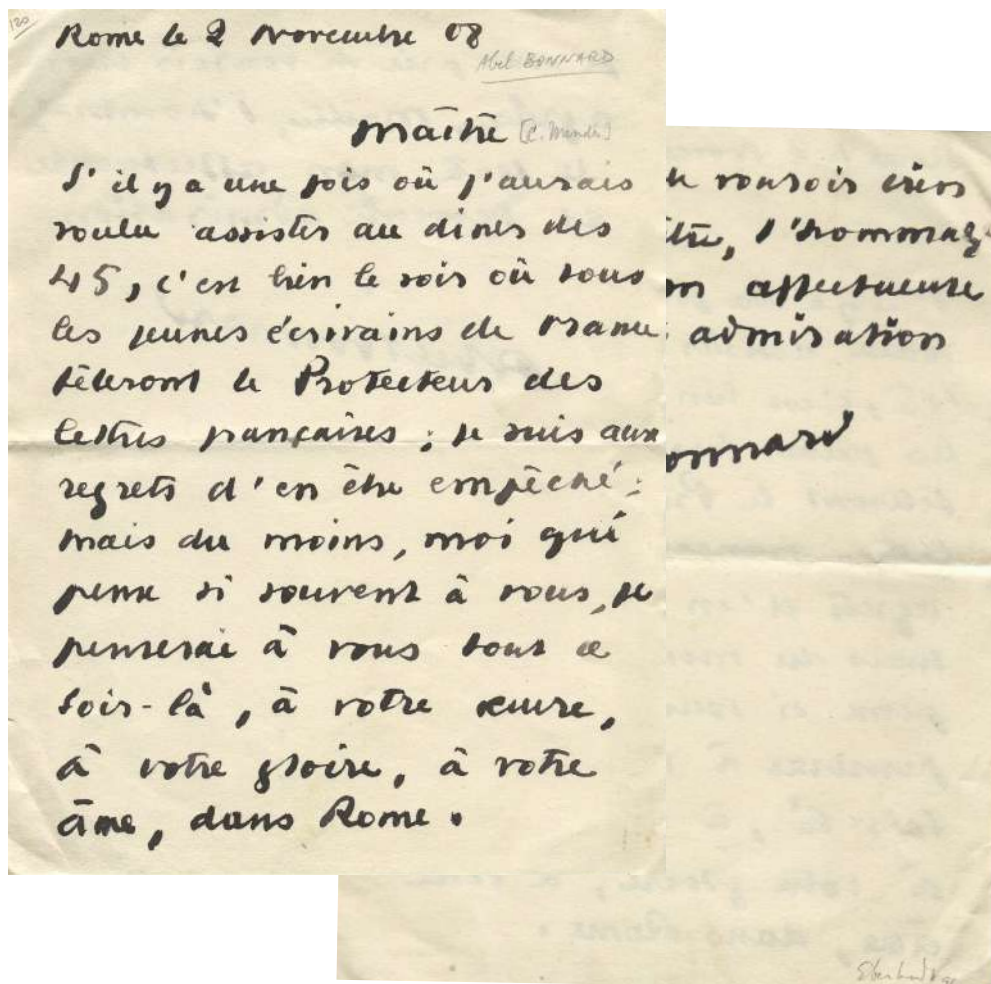 120
Rome le 2 Novembre 08
Abel BONNARD
Maître [C. Mendès]
S'il y a une fois où j'aurais
voulu assister au diner des
45, c'est bien le soir où tous
les jeunes écrivains de France
fêteront le Protecteur des
lettres françaises ; je suis aux
regrets d'en être empêché ;
mais du moins, moi qui
pense si souvent à vous, je
penserai à vous tout ce
soir-là, à votre œuvre,
à votre gloire, à votre
âme, dans Rome.
vouloir bien
ître, l'hommage
on affectueuse
admiration
onnard